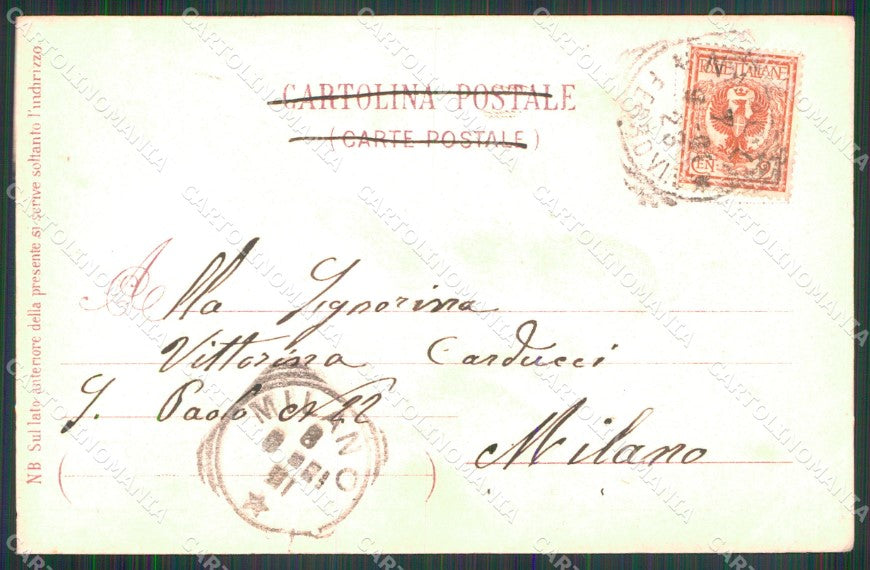 CARTOLINA POSTALE
(CARTE POSTALE)
POSTE ITALIANE
NB Sul lato anteriore della presente si scrive soltanto l'indirizzo.
Alla Signorina
Vittorina Carducci
S. Paolo
Milano
MILANO
CARTOLINOMANIA